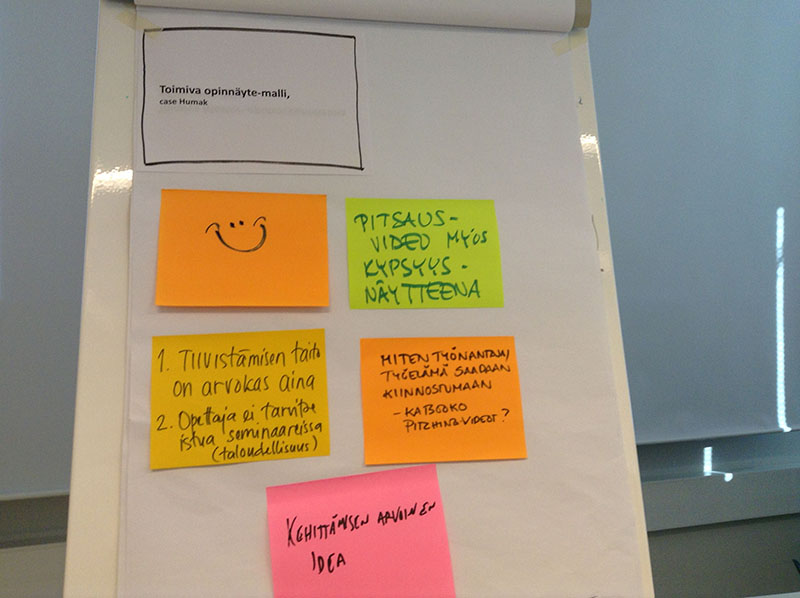 Toimiva opinnäyte-malli,
case Humak
PITSAUS-
VIDEO MYÖS
KYPSYYS-
NÄYTTEENÄ
1. TIIVISTÄMISEN taito
on arvokas aina
2. Opettaja ei tarvitse
istua seminaareissa
(taloudellisuus)
MITEN TYÖNANTAJA/
TYÖELÄMÄ SAADAAN
KIINNOSTUMAAN
- KATSOOKO
PITCHING-VIDEOT?
KEHITTÄMISEN ARVOINEN
IDEA